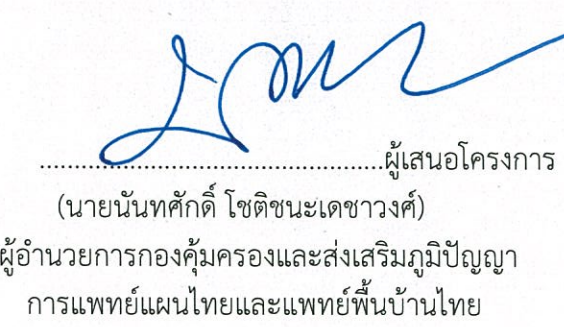 .............................................ผู้เสนอโครงการ
(นายนันทศักดิ์ โชติชนะเดชาวงศ์)
ผู้อำนวยการกองคุ้มครองและส่งเสริมภูมิปัญญา
การแพทย์แผนไทยและแพทย์พื้นบ้านไทย